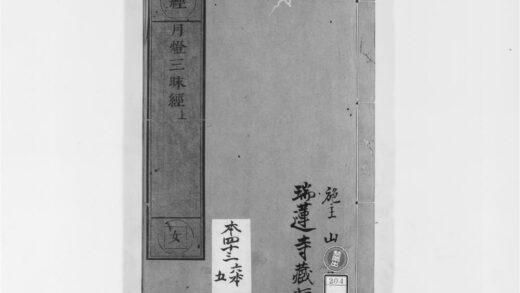 經
月燈三昧經上
女
本四十三 六本
五
施主 山
瑞蓮寺藏
204